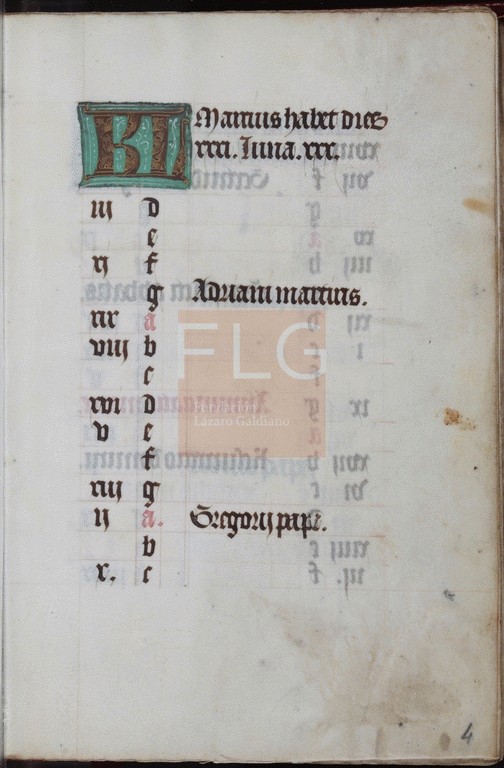 KL Marcius habet dies
xxxi. Luna. xxx.
iii d
e
xi f
g Adriani martiris.
xix a
viii b
c
xvi d
v e
f
xiii g
ii a. Gregorii pape.
b
x. c
FLG
Fundación
Lázaro Galdiano
4